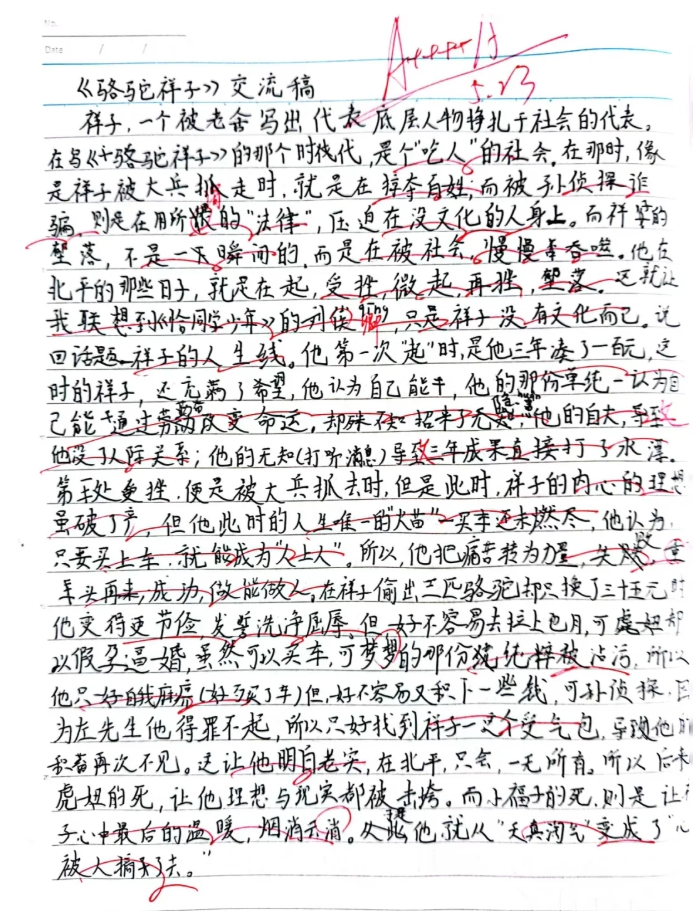 No.
Date / /
A++++ 优
5.23
《骆驼祥子》交流稿
祥子，一个被老舍写出代表底层人物挣扎于社会的代表。
在写《骆驼祥子》的那个时代，是个"吃人"的社会。在那时，像
是祥子被大兵抓走时，就是在掠夺百姓；而被孙侦探诈
骗，则是在用所谓的"法律"，压迫在没文化的人身上。而祥子的
堕落，不是一下瞬间的，而是在被社会，慢慢吞噬。他在
北平的那些日子，就是在起，受挫，微起，再挫，堕落。这就让
我联想到《恰同学少年》的刘俊卿，只是祥子没有文化而已。说
回话题，祥子的人生线。他第一次"起"时，是他三年凑了一百元，这
时的祥子，还充满了希望，他认为自己能干，他的那份单纯一认为自
己能通过劳动改变命运，却殊不知招来了无处；他的自大，导致
他没了人际关系；他的无知(打听消息)导致三年成果直接打了水漂。
第一处受挫，便是被大兵抓去时，但是此时，祥子的内心的理想
虽破了产，但他此时的人生唯一的"火苗"一买车还未燃尽，他认为
只要买上车，就能成为"人上人"。所以，他把痛苦转为力量，失败，重
年头再来，成功，做能做人。在祥子偷出三匹骆驼却只换了三十五元时
他变得更节俭，发誓洗净屈辱。但好不容易去拉上包月，可虎妞却
以假孕逼婚，虽然可以买车，可梦想的那份纯纯粹被沾污，所以
他只好自我麻痹(好歹买了车)但，好不容易又积下一些钱，可孙侦探，因
为左先生他得罪不起，所以只好找到祥子一这个受气包，导致他的
积蓄再次不见。这让他明白老实，在北平，只会，一无所有。所以后来
虎妞的死，让他理想与现实都被击垮。而小福子的死，则是让祥
子心中最后的温暖，烟消云消。从此他，就从"天真淘气"变成了"心
被人摘了去。"